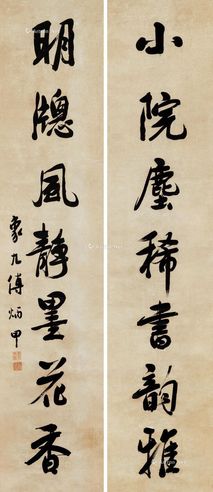 小院塵稀書韵雅
明牕風靜墨花香
象九傅炳甲